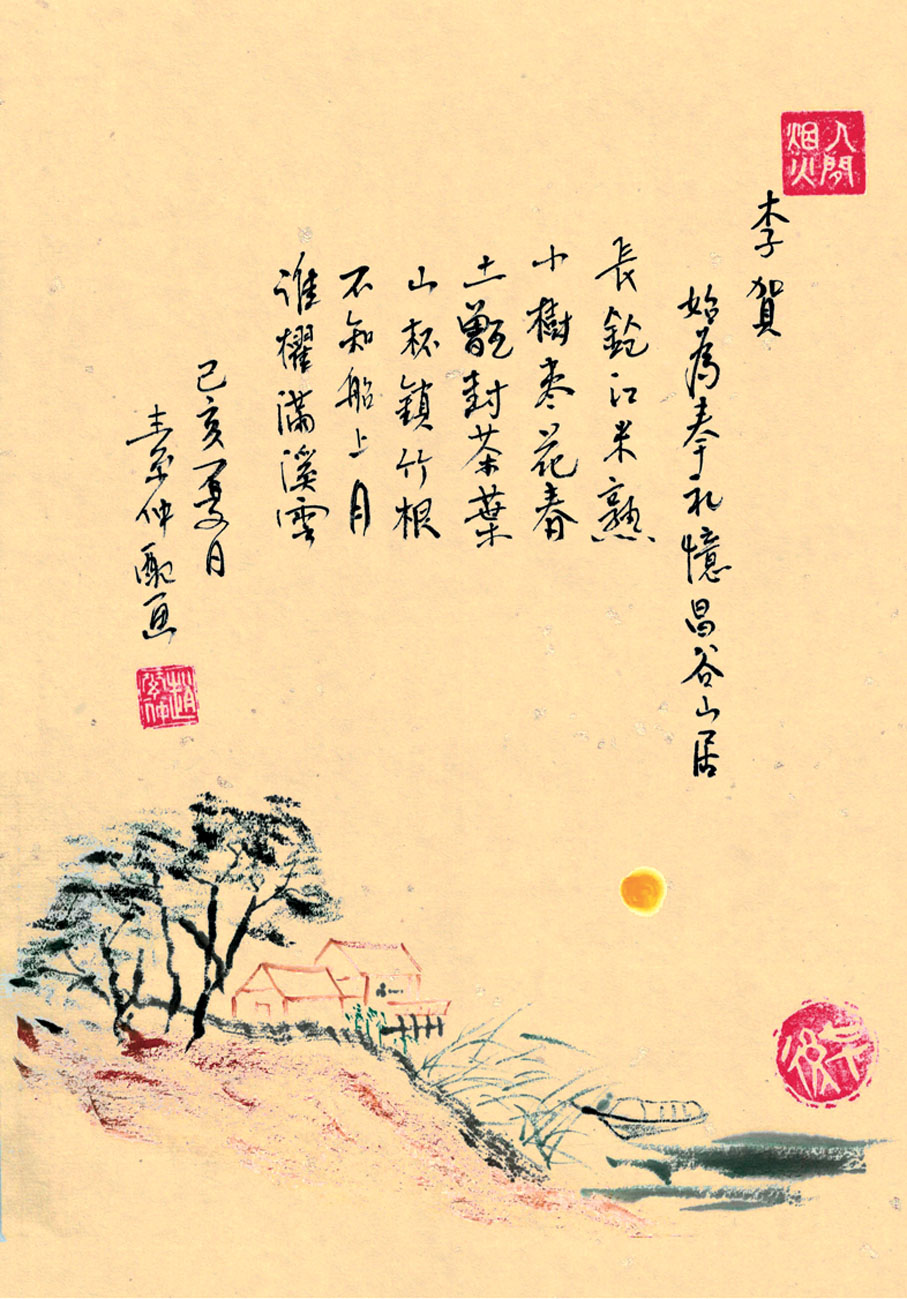 人間
烟火
李賀
始為奉礼憶昌谷山居
長鎗江米熟
小樹棗花春
土甑封茶葉
山杯鎖竹根
不知船上月
誰櫂滿溪雲
己亥夏月
仲配画